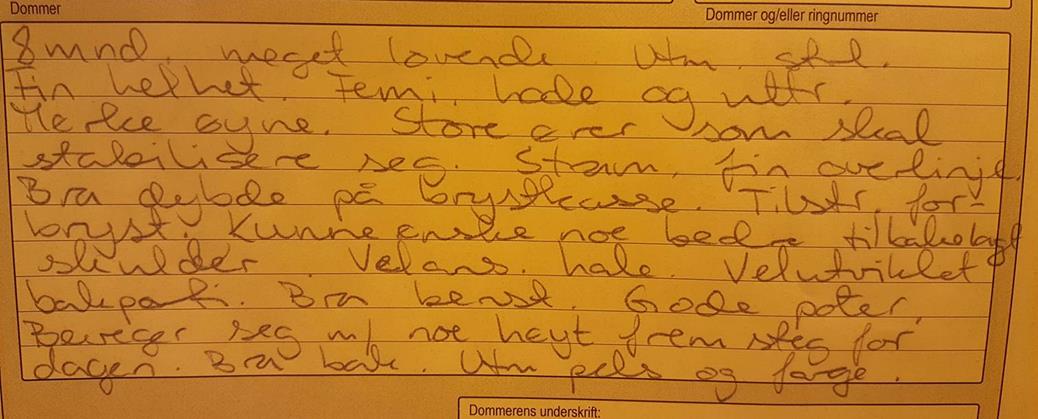 Dommer
Dommer og/eller ringnummer
8 mnd. meget lovende Utm. skl.
Fin helhet. Femi. hode og uttr.
Mørke øyne. Store ører som skal
stabilisere seg. Stram, fin overlinje.
Bra dybde på brystkasse. Tilstr. for-
bryst. Kunne ønske noe bedre tilbakelagt
skulder. Vel ans. hale. Velutviklet
bakparti. Bra benst. Gode poter.
Beveger seg m/ noe høyt frem steg for
dagen. Bra bak. Utm pels og farge.
Dommerens underskrift: